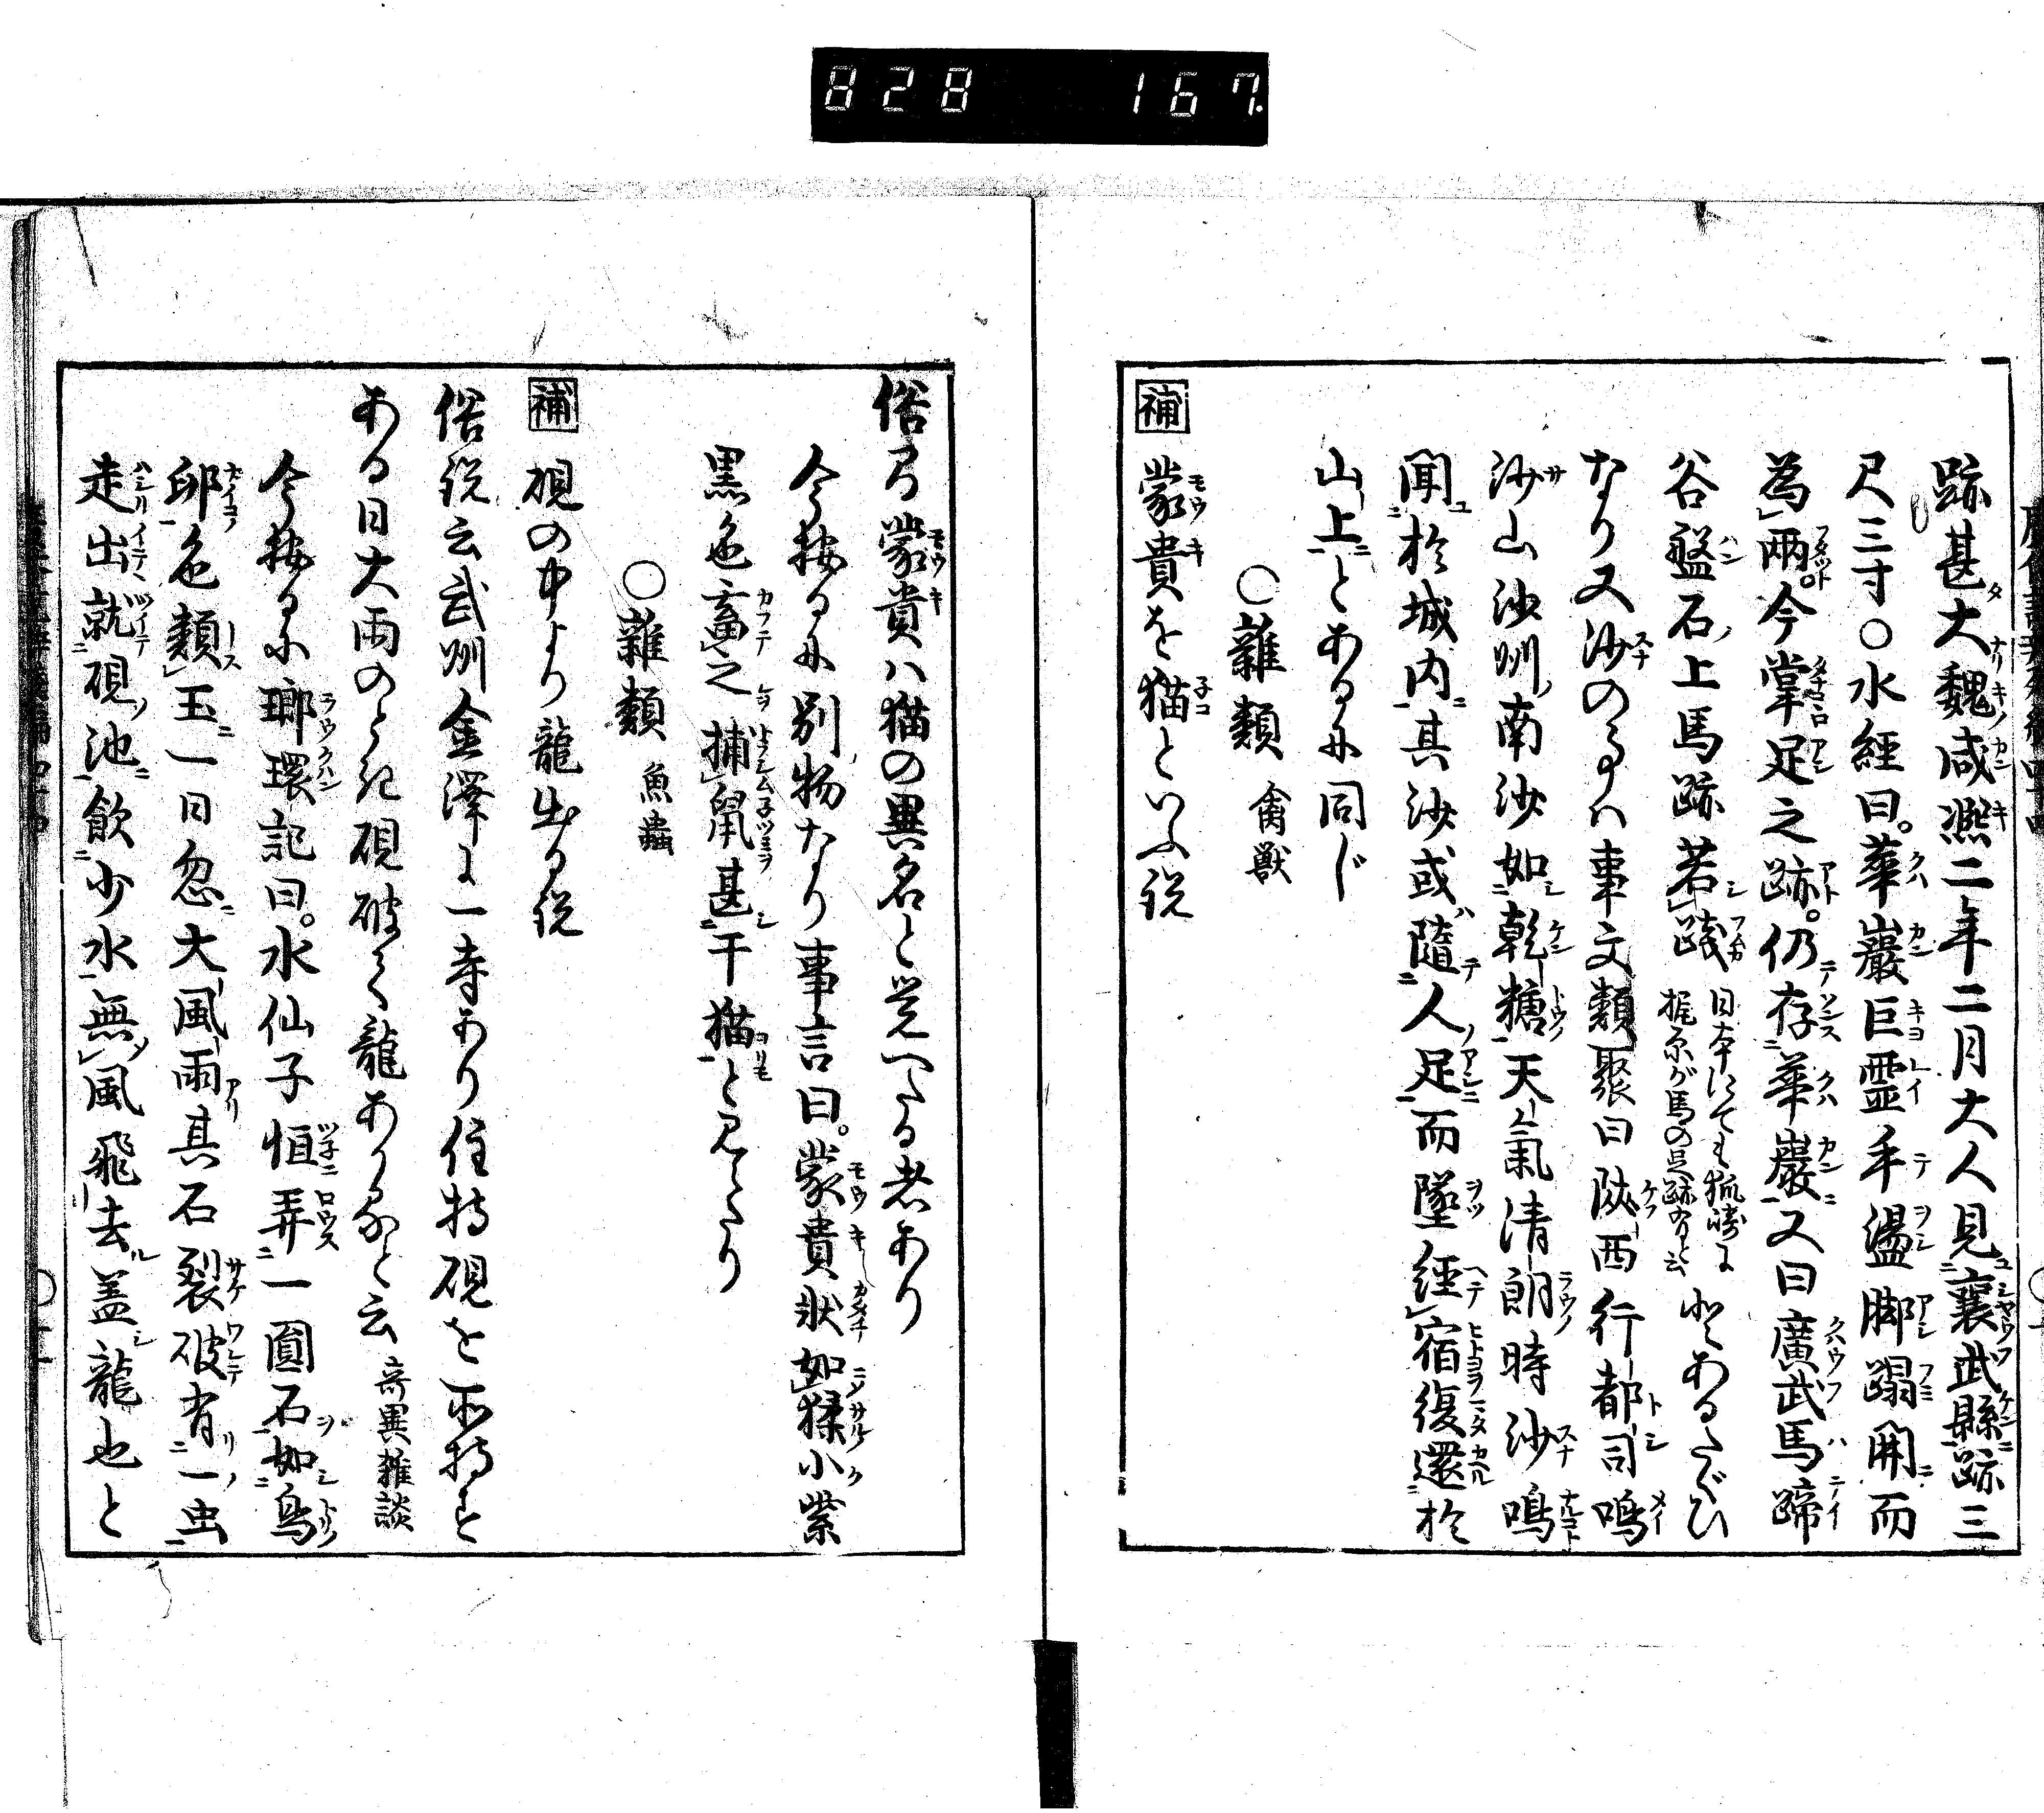 828 167
跡甚大魏咸熈二年二月大人見襄武縣跡三
尺三寸○水經曰。華巖巨霊手盪脚蹋開而
為兩。今掌足之跡。仍存華巖又曰廣武馬蹄
谷盤石上馬跡若踐 日本にても狐崎に
梶原が馬の足跡有と云 とあるたぐひ
なり又沙のなるハ事文類聚曰陜西行都司鳴
沙山沙州南沙如乾糖天氣清朗時沙鳴
聞於城内其沙或隨人足而墜經宿復還於
山上とあるに同じ
○雜類 禽獸
補 蒙貴を猫といふ説
俗間蒙貴ハ猫の異名と覚へたる者あり
今按るに別物なり事言曰。蒙貴状如猱小紫
黒色畜之捕鼠甚于猫と見へたり
○雜類 魚蟲
補 硯の中より龍出る説
俗説云武州金澤に一寺あり住持硯を所持す
ある日大雨のとき硯破て龍あがると云 奇異雑談
今按るに瑯環記曰。水仙子恒弄一圓石如鳥
卵色類玉一日忽大風雨其石裂破有一虫
走出就硯池飲少水無風飛去盖龍也と